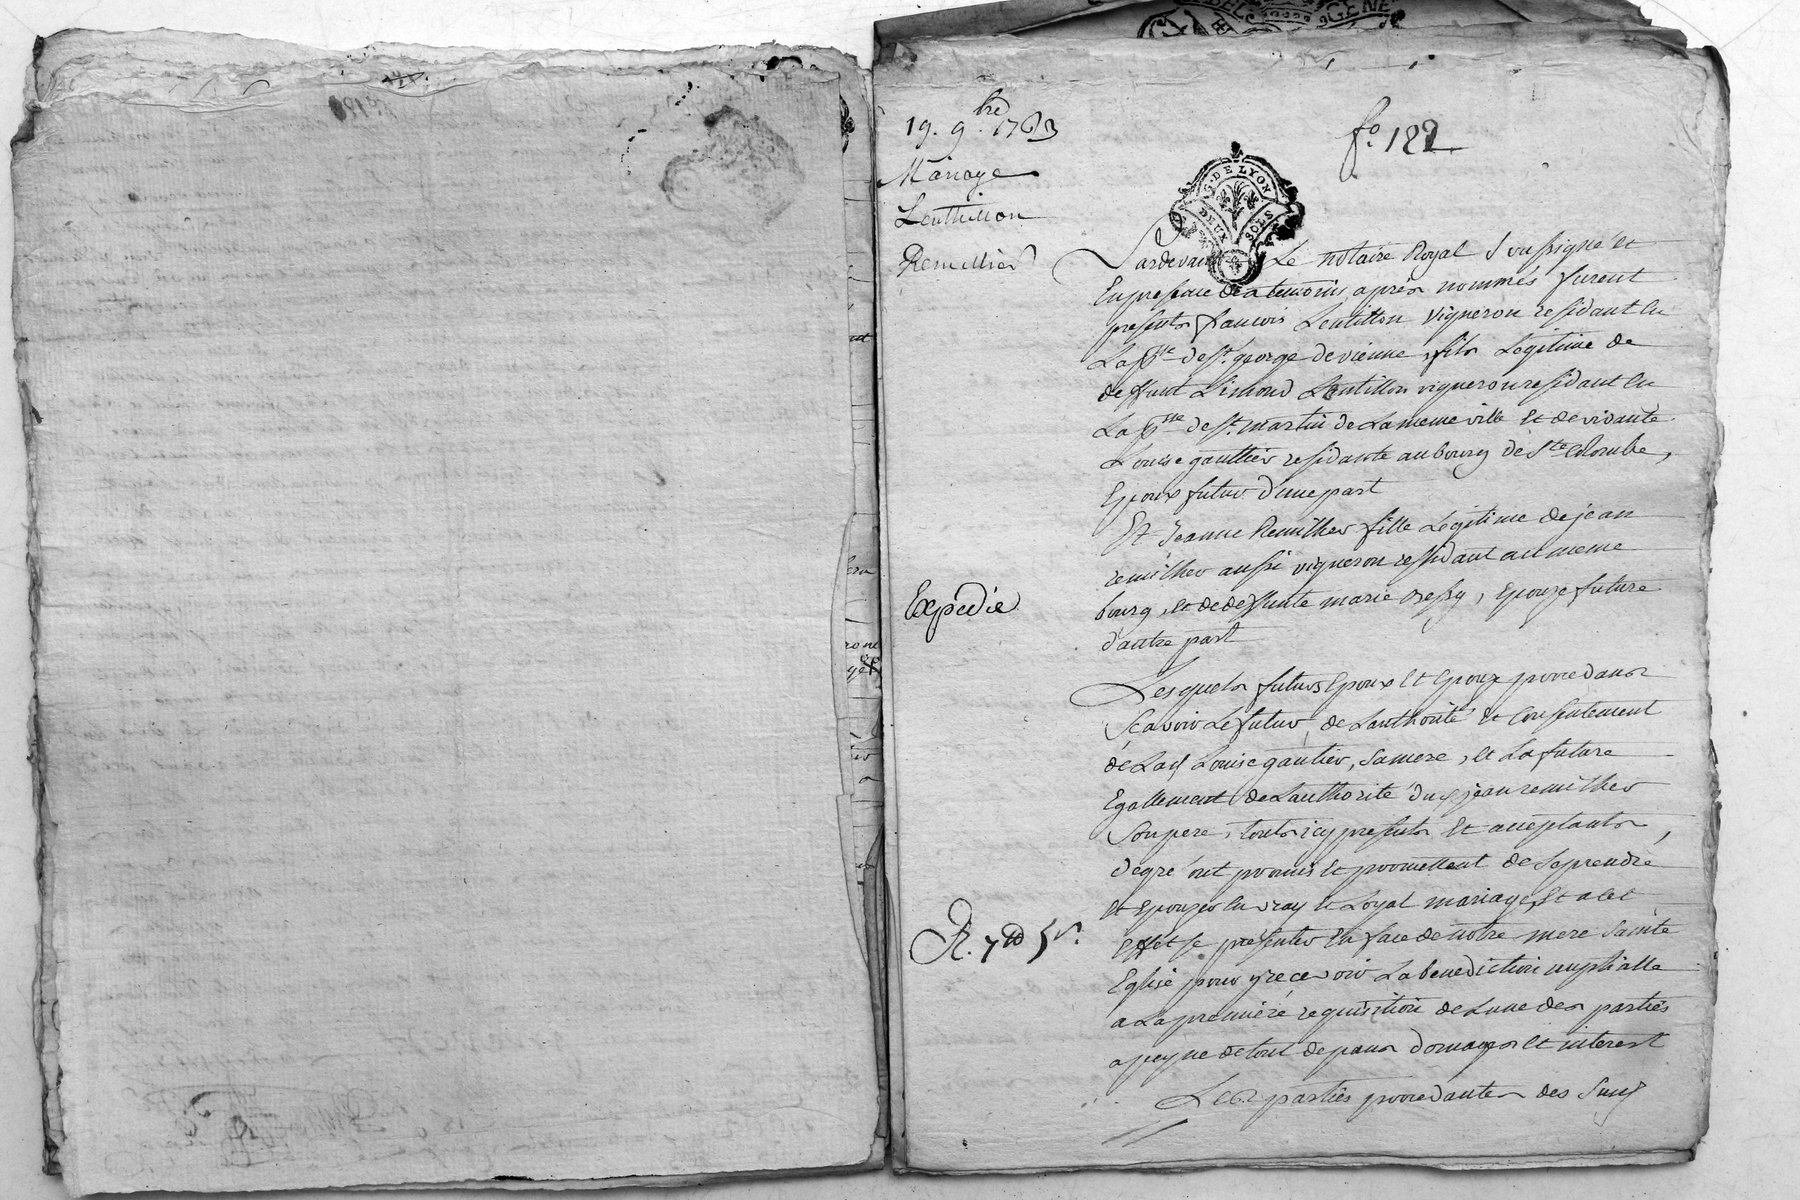 19. 9.bre 1763
Mariage
Lentillon
Remillier
fo. 182
G. DE LYON
DEUX SOLS
Pardevant Le notaire Royal Soussigné et
En presence des temoins apres nommés furent
presents françois Lentillon vigneron residant en
La psse de st. george de vienne, fils Legitime de
deffunt Simond Lentillon vigneron residant En
La psse de st. martin de La meme ville Et de vivante
Louise gauthier residante au bourg de Ste Colombe,
Epoux futur d'une part
Et Jeanne Remilher fille Legitime de jean
remilher aussi vigneron residant au meme
bourg, et de deffunte marie , Epouze future
d'autre part
Expedié
Lesquels futurs Epoux Et Epouze procedans
Scavoir Le futur, de Lauthorité Et Consentement
de Lad Louise gautier, Sa mere, et La future
Egallement de Lauthorité dud jean remilher
Son pere, touts icy presents Et acceptants,
de gré ont promis Et promettent de Se prendre
Et Epouzer En vray Et Loyal mariage, Et a cet
Effet Se presenter En face de notre mere Sainte
Eglise pour y recevoir La benediction nuptialle
a La premiere requisition de Lune des parties
a peyne de tout depans domages Et interest
R. 7 5s.
Les parties procedantes des Susd